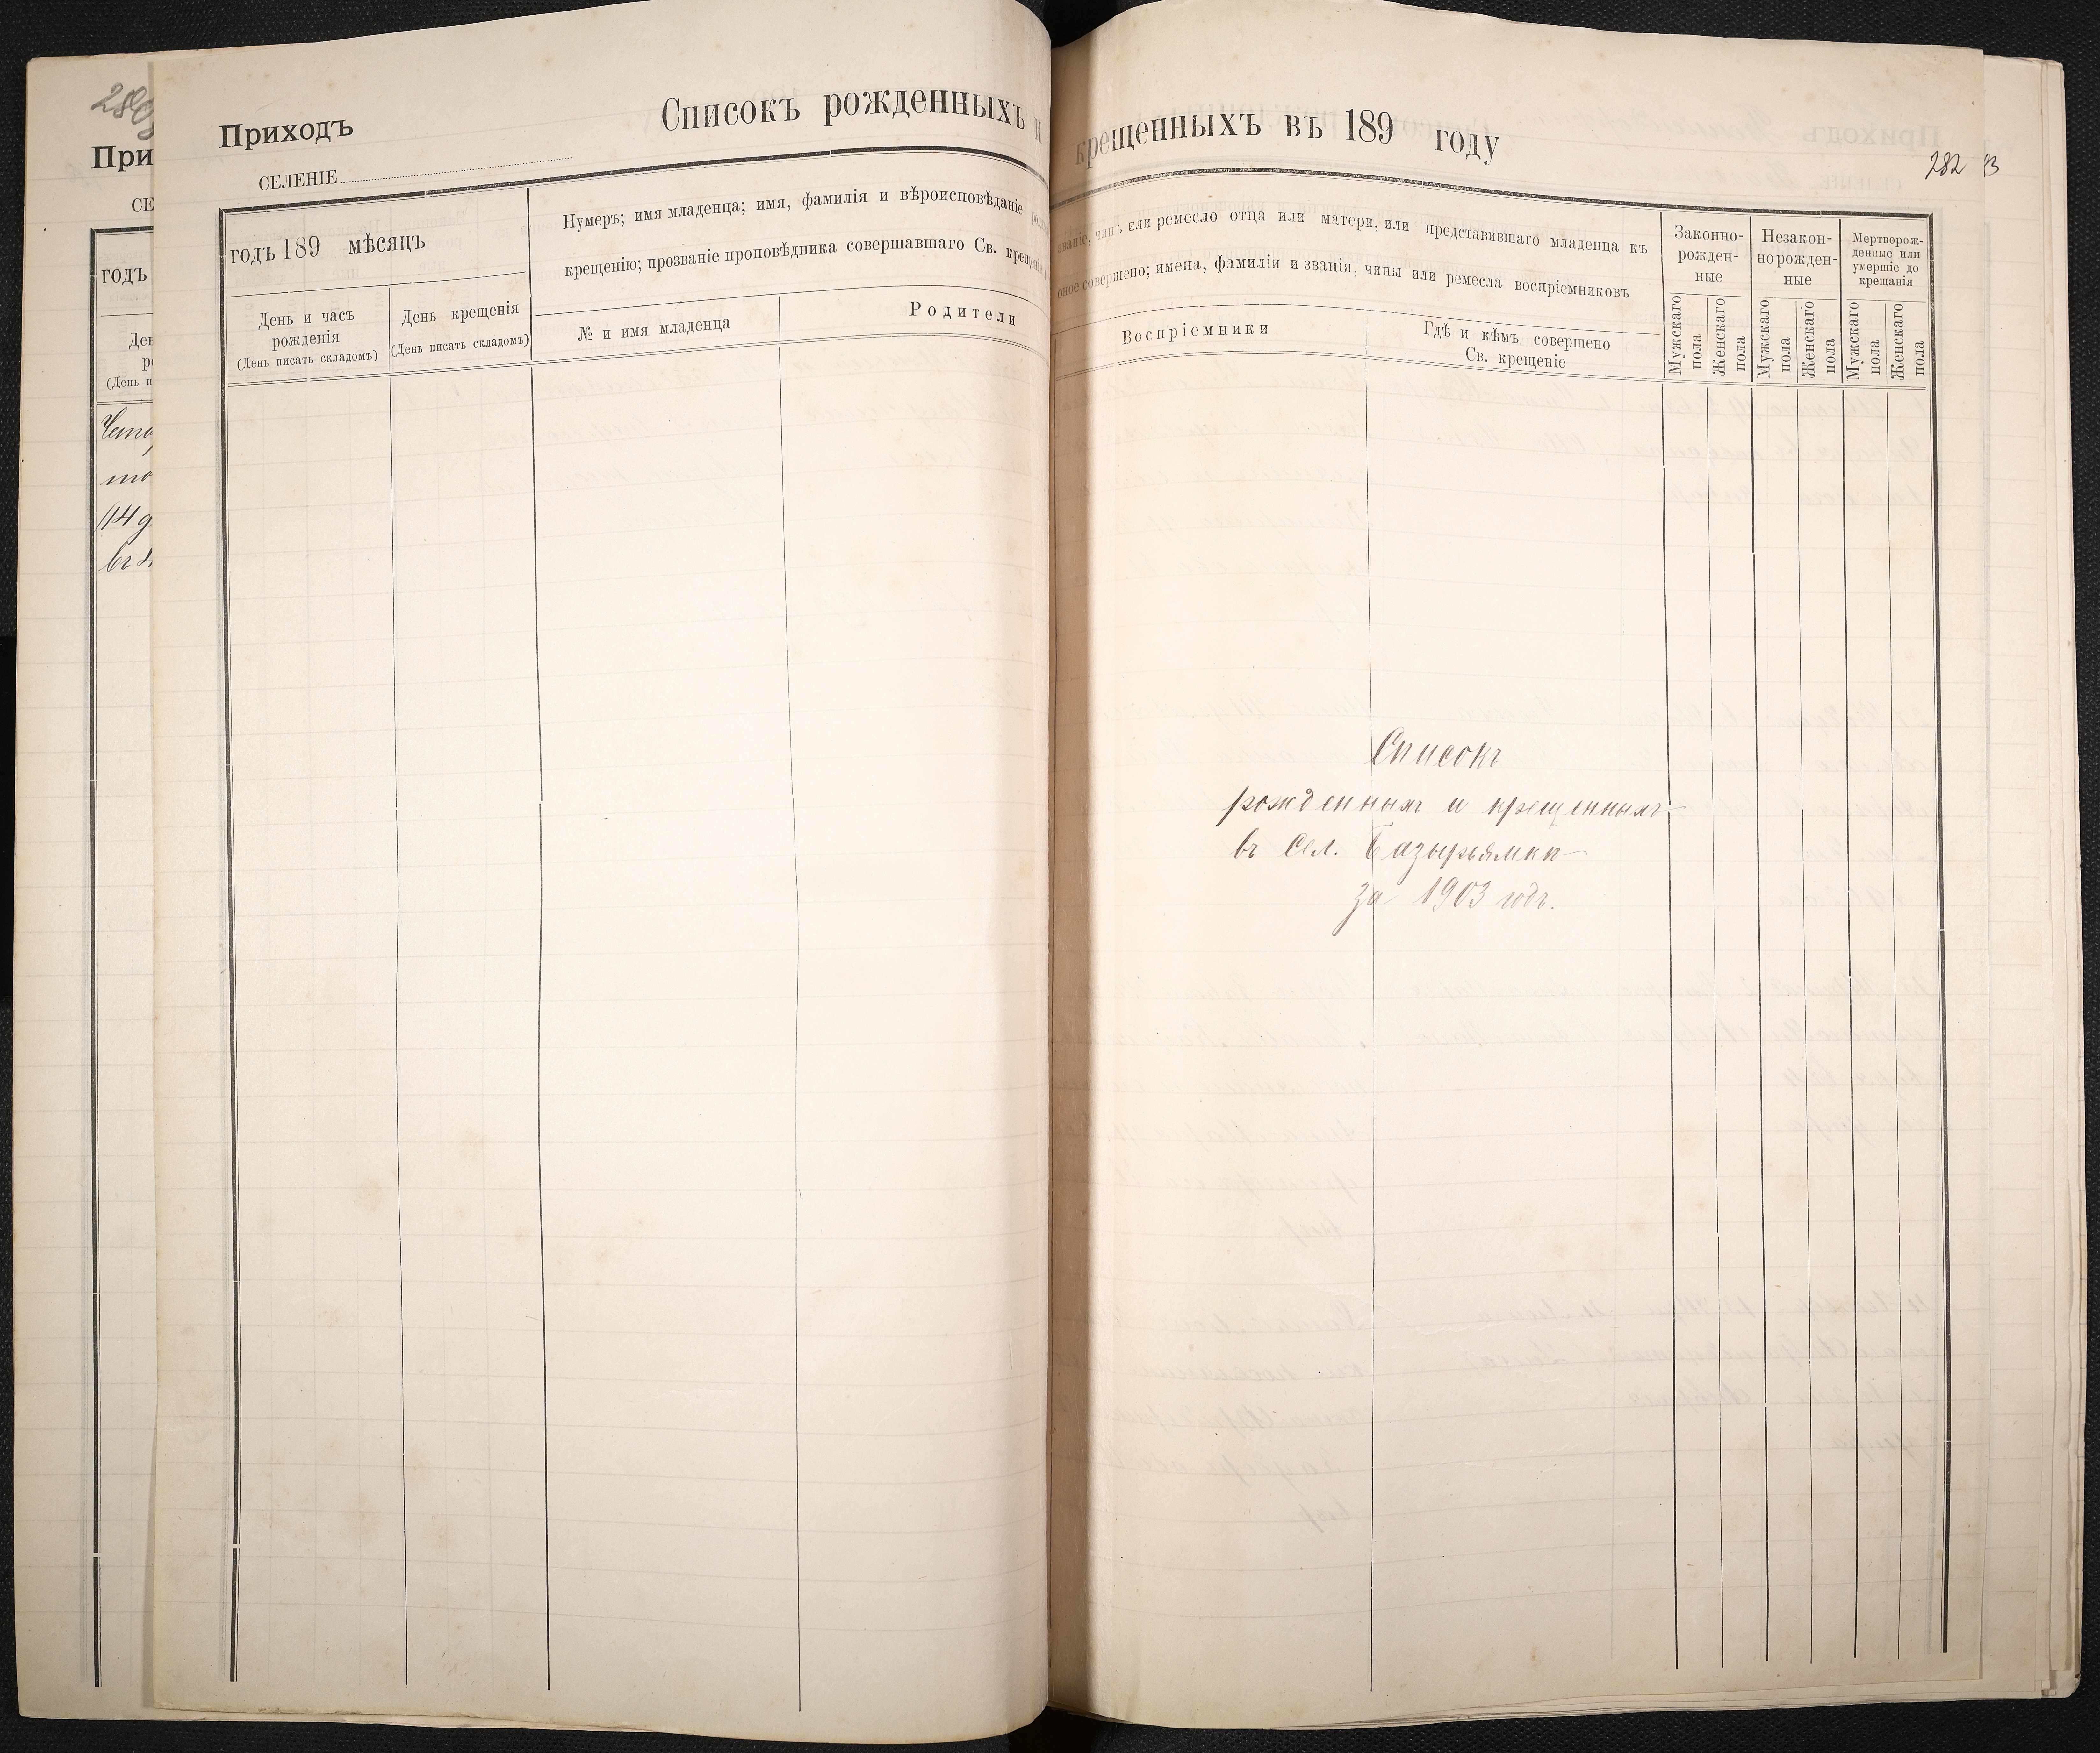 При
СЕ
годъ
Приходъ
СЕЛЕНІЕ
Списокъ рожденныхъ и крещенныхъ въ 189 году
282
годъ 189 мѣсяцъ
День и часъ
рожденія
(День писать складомъ)
День крещенія
(День писать складомъ)
Нумеръ; имя младенца; имя, фамилія и вѣроисповѣданіе
крещенію; прозваніе проповѣдника совершавшаго Св. крещеніе
№ и имя младенца
Родители
чинъ или ремесло отца или матери, или представившаго младенца къ
оное совершено; имена, фамиліи и званія, чины или ремесла воспріемниковъ
Воспріемники
Гдѣ и кѣмъ совершено
Св. крещеніе
Законно-
рожден-
ные
Незакон-
норожден-
ные
Мертворож-
денные или
умершіе до
крещанія
Мужскаго
пола
Женскаго
пола
Мужскаго
пола
Женскаго
пола
Мужскаго
пола
Женскаго
пола
Списокъ
рожденныхъ и крещенныхъ
въ сел. Базырьямкѣ
за 1903 годъ.